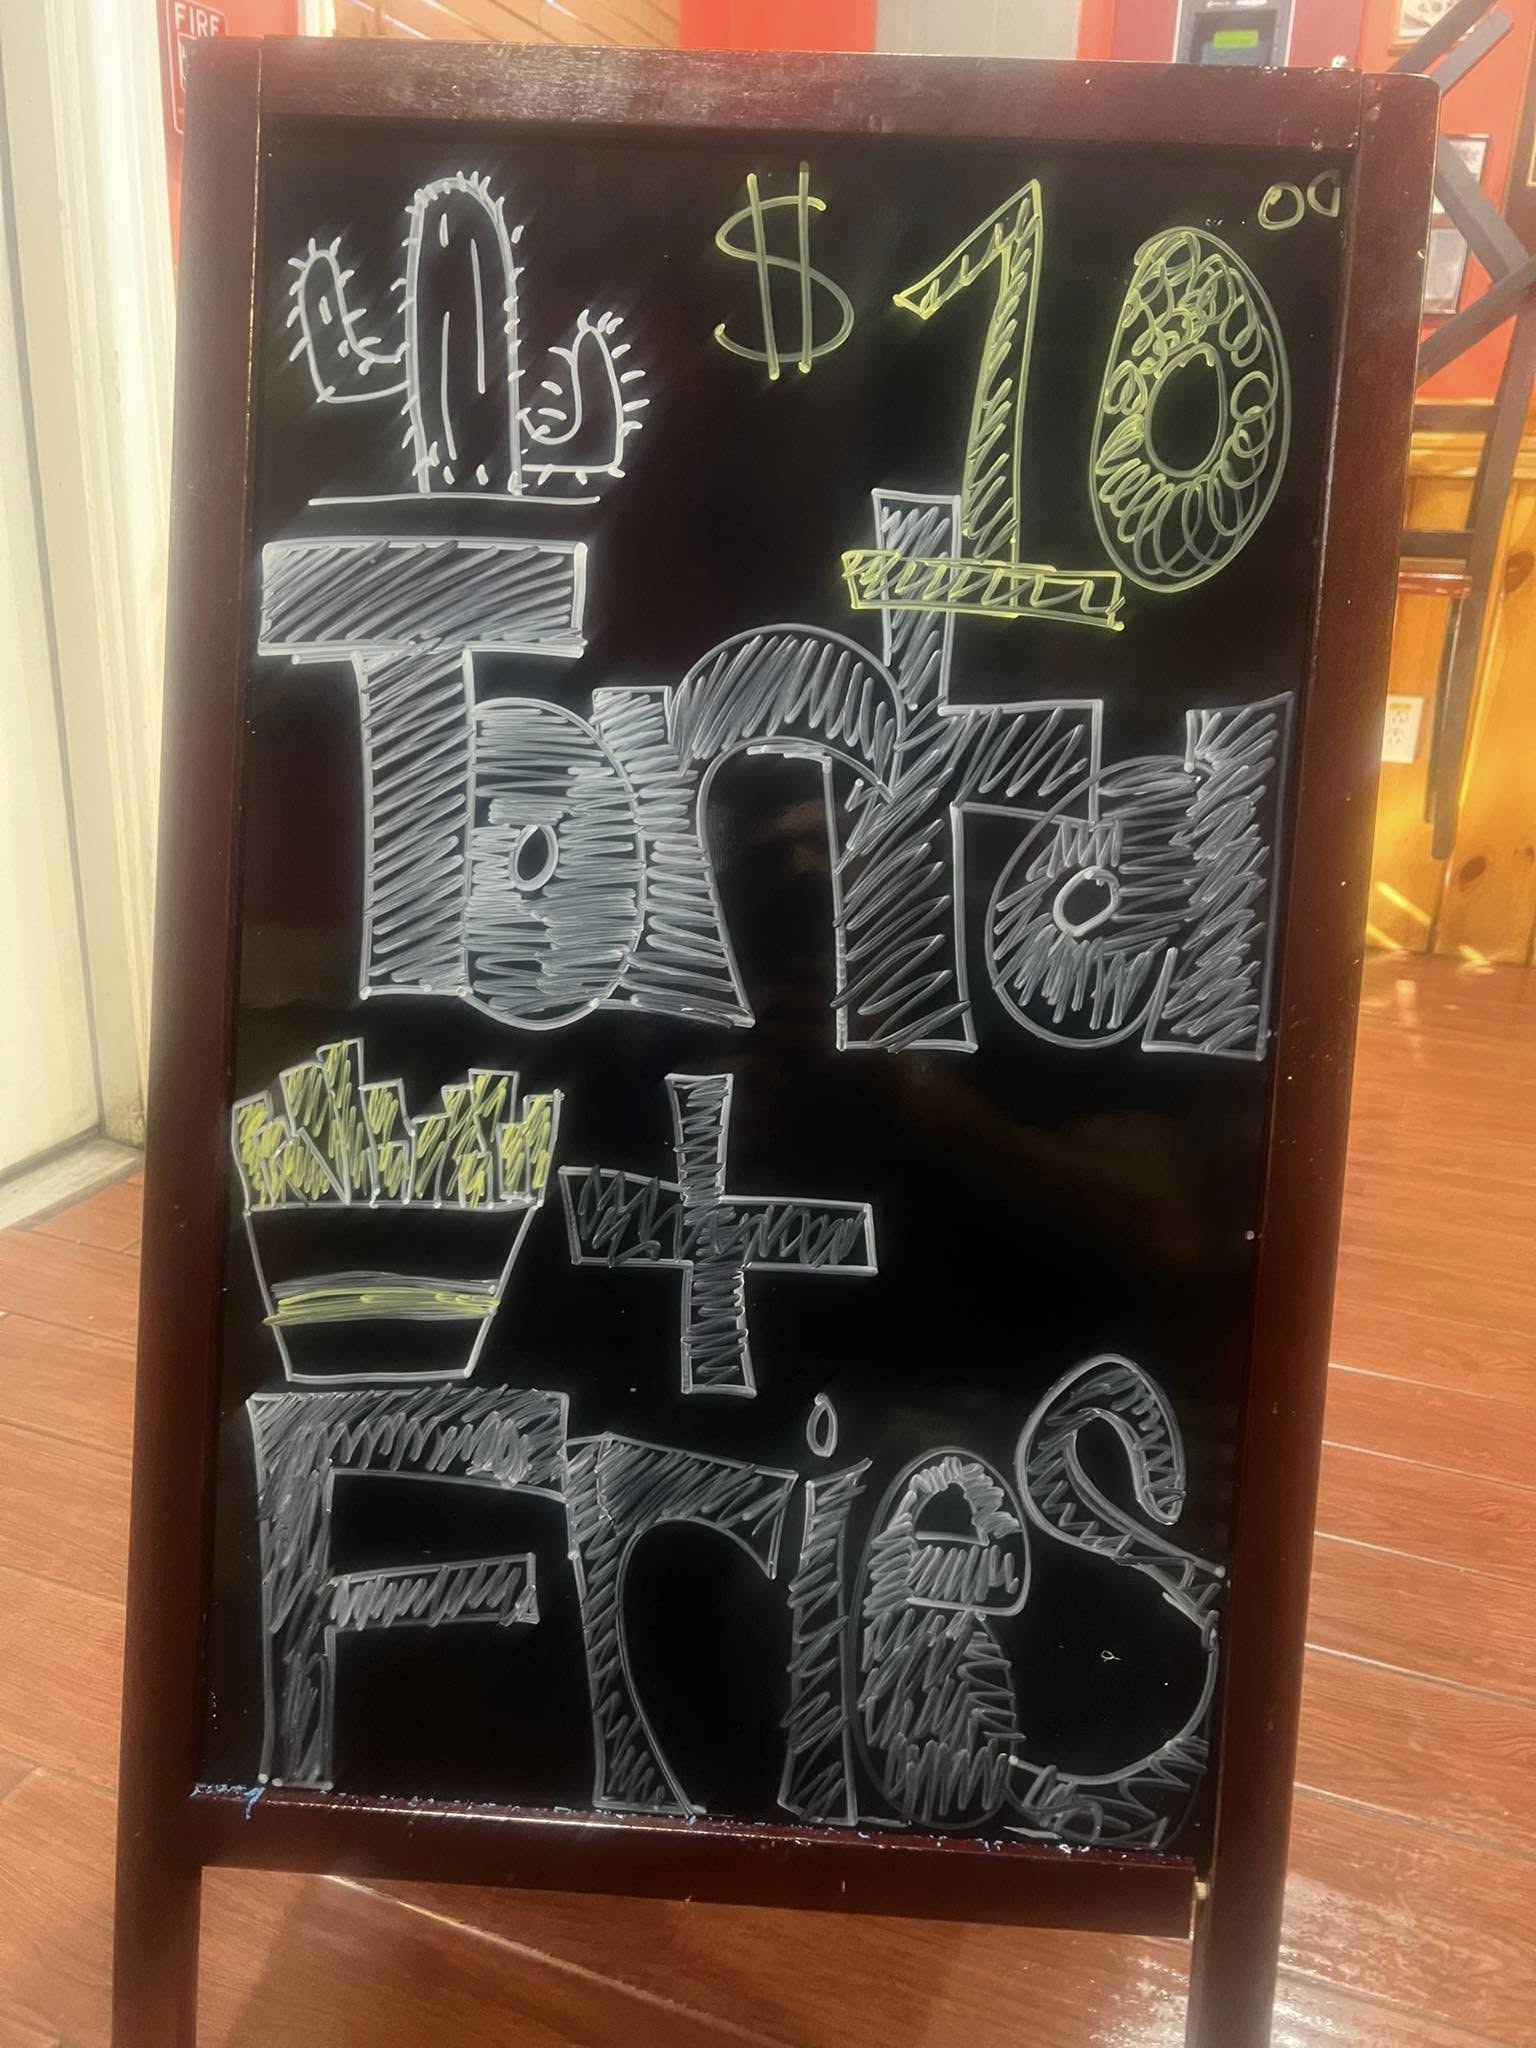 FIRE
$10 00
Torta
+
Fries